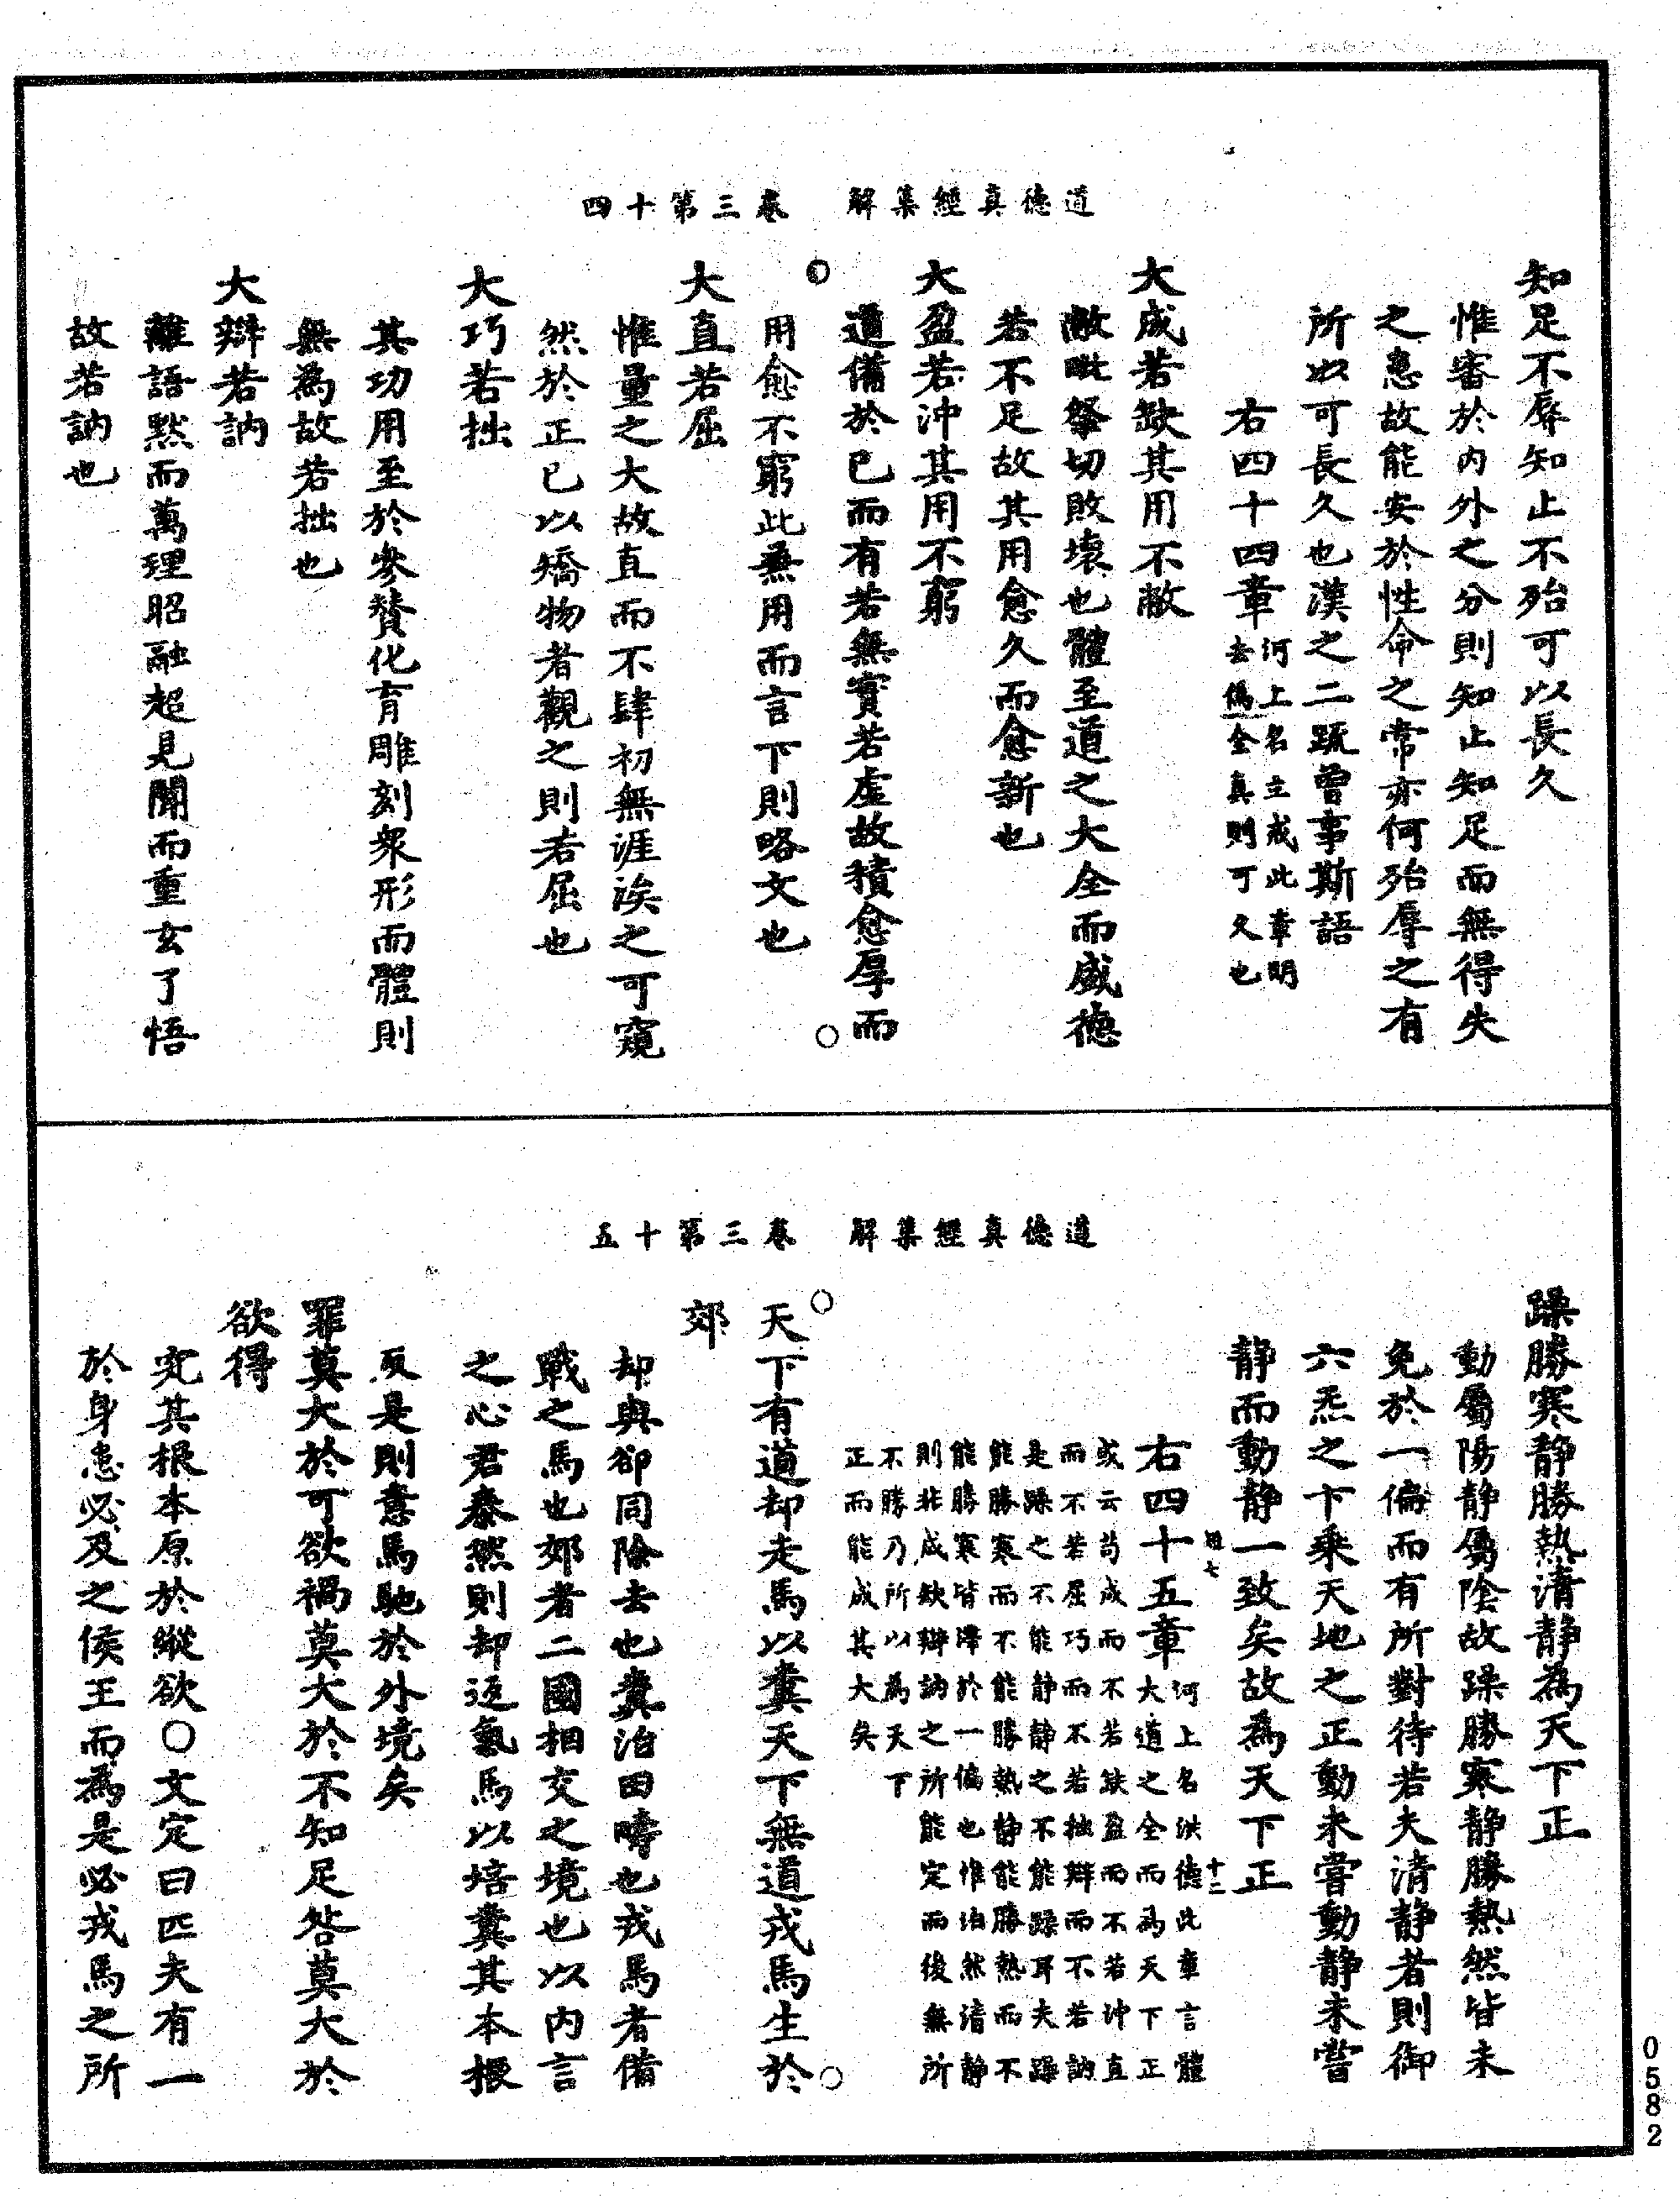 道德真經集解　卷三第十四
知足不辱知止不殆可以長久
惟審於内外之分則知止知足而無得失
之患故能安於性命之常亦何殆辱之有
所以可長久也漢之二疏曾事斯語
右四十四章
河上名立戒此章明
去僞全真則可久也
大成若缺其用不敝
敝毗祭切敗壞也體至道之大全而盛德
若不足故其用愈久而愈新也
大盈若沖其用不窮
道備於已而有若無實若虛故積愈厚而
用愈不窮此兼用而言下則略文也
大直若屈
惟量之大故直而不肆初無涯涘之可窺
然於正已以矯物者觀之則若屈也
大巧若拙
其功用至於參贊化育雕刻衆形而體則
無為故若拙也
大辯若訥
離語黙而萬理昭融超見聞而重玄了悟
故若訥也
道德真經集解　卷三第十五
躁勝寒静勝熱清静為天下正
動屬陽静屬陰故躁勝寒静勝熱然皆未
免於一偏而有所對待若夫清静者則御
六炁之卞乘天地之正動未嘗動静未嘗
静而動静一致矣故為天下正
右四十五章
河上名洪德此章言體
大道之全而為天下正
或云苟成而不若缺盈而不若沖直
而不若屈巧而不若拙辯而不若訥
是躁之不能静静之不能躁耳夫躁
能勝寒而不能勝熱静能勝熱而不
能勝寒皆滯於一偏也惟泊然清静
則非成缺辯訥之所能定而後無所
不勝乃所以為天下
正而能成其大矣
天下有道却走馬以糞天下無道戎馬生於
郊
却與卻同除去也糞治田疇也戎馬者備
戰之馬也郊者二國相交之境也以内言
之心君泰然則却返氣馬以培糞其本根
反是則意馬馳於外境矣
罪莫大於可欲禍莫大於不知足咎莫大於
欲得
究其根本原於縱欲○文定曰匹夫有一
於身患必及之侯王而為是必戎馬之所
0582